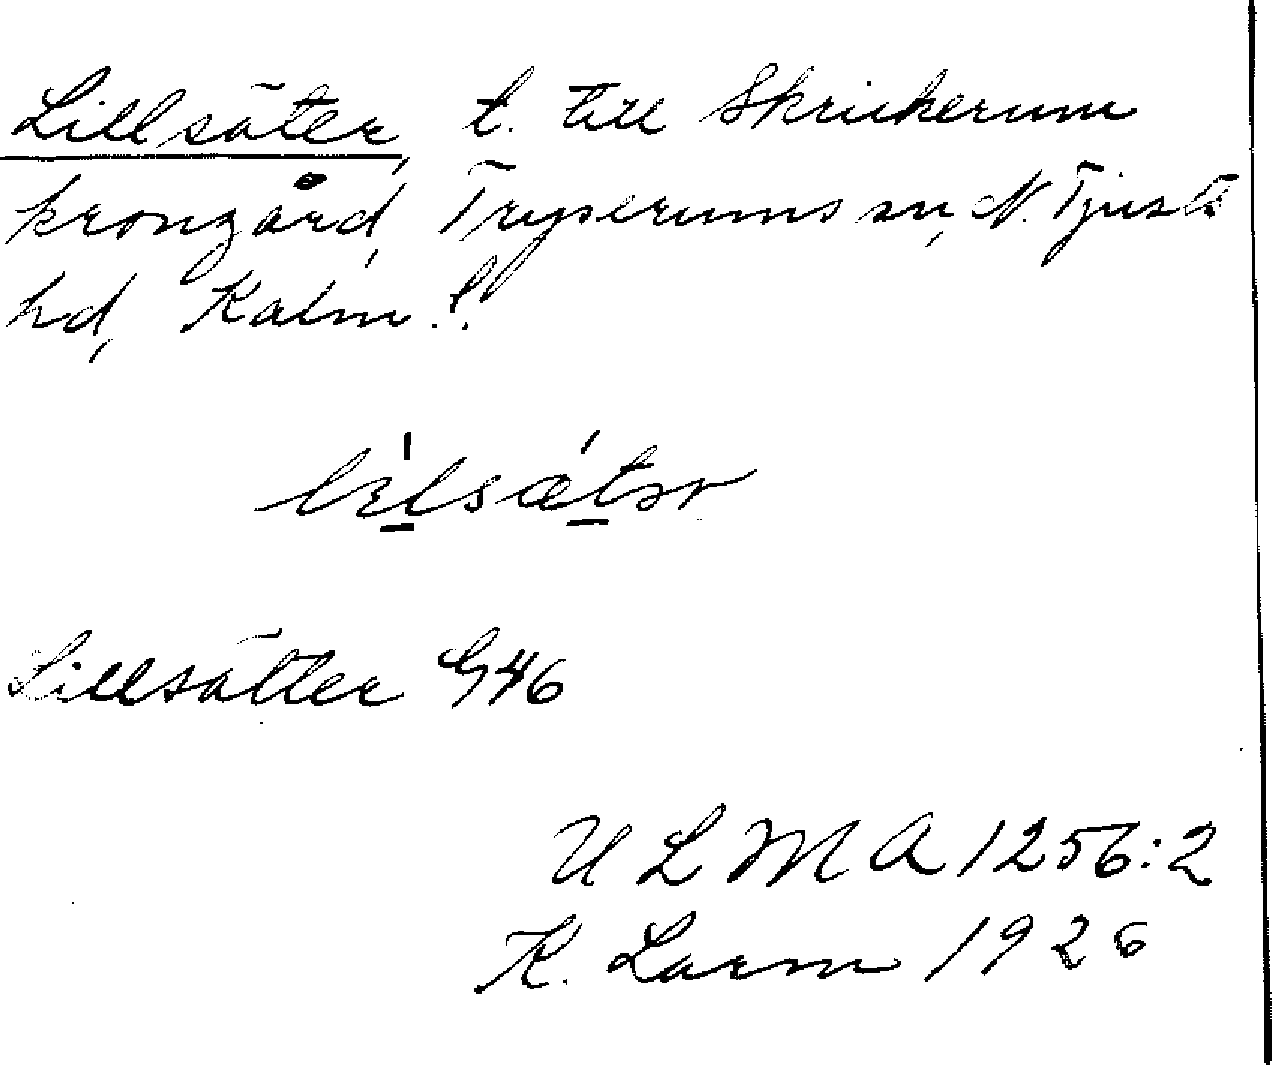 Lillsäter, t. till Skrickerum
krongård, Tryserums sn, N. Tjusts
hd, Kalm. l.
Lillsätter G46
ULMA 1256:2
K. Larm 1926